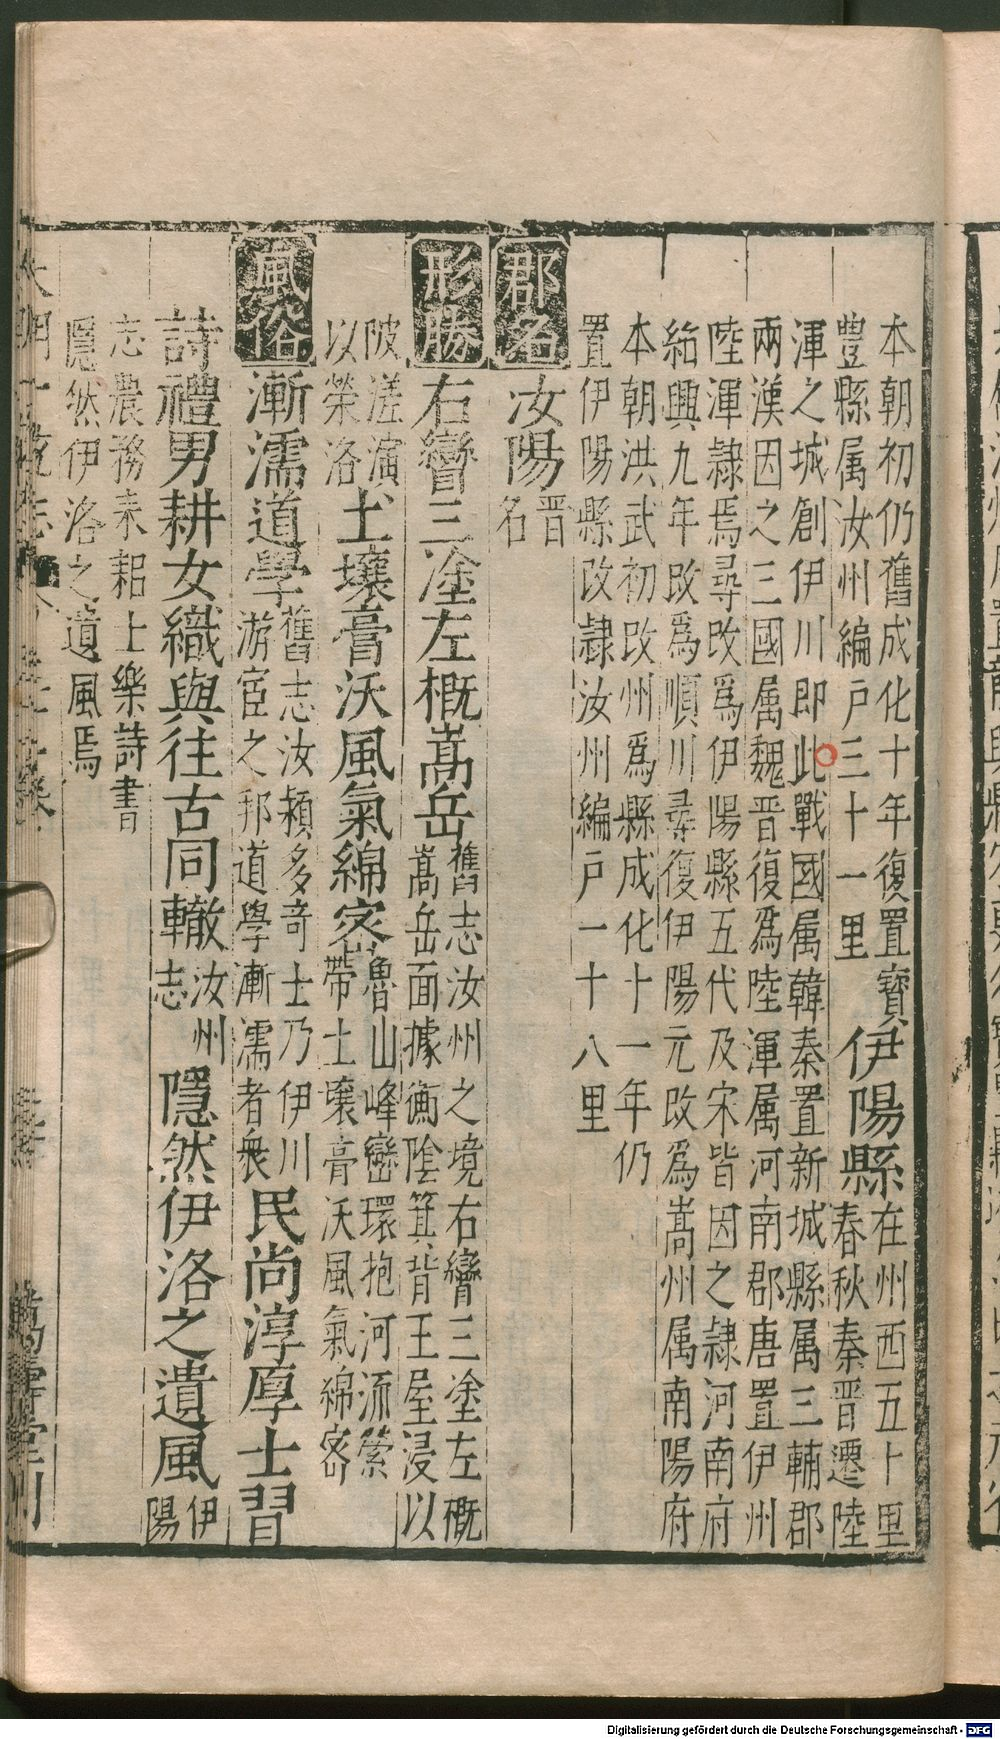 本朝初仍舊成化十年復置寶
豊縣属汝州編戶三十一里
伊陽縣
在州西五十里
春秋秦晉遷陸
渾之城創伊川即此戰國属韓秦置新城縣属三輔郡
兩漢因之三國属魏晉復爲陸渾属河南郡唐置伊州
陸渾隷焉尋改爲伊陽縣五代及宋皆因之隷河南府
紹興九年改爲順川尋復伊陽元改爲嵩州属南陽府
本朝洪武初改州爲縣成化十一年仍
置伊陽縣改隷汝州編戶一十八里
郡名
汝陽
晋
名
形勝
右轡三塗左概嵩岳
舊志汝州之境右轡三塗左概
嵩岳面據衡陰箕背王屋浸以
陂溠演
以榮洛
土壤膏沃風氣綿密
魯山峰巒環抱河流縈
帶土壤膏沃風氣綿密
風俗
漸濡道學
舊志汝潁多奇士乃伊川
游宦之邦道學漸濡者衆
民尚淳厚士習
詩禮男耕女織與往古同轍
汝州
志
隱然伊洛之遺風
伊
陽
志農務耒耜士樂詩書
隱然伊洛之遺風焉
大明一統志
萬壽堂刊
Digitalisierung gefördert durch die Deutsche Forschungsgemeinschaft - DFG